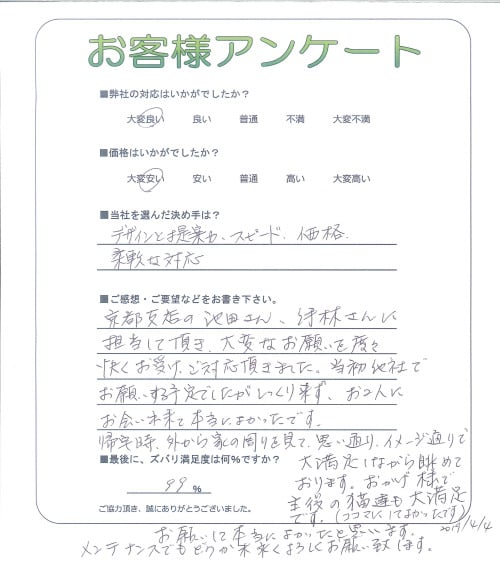 お客様アンケート
■弊社の対応はいかがでしたか？
大変良い 良い 普通 不満 大変不満
■価格はいかがでしたか？
大変安い 安い 普通 高い 大変高い
■当社を選んだ決め手は？
デザインと提案力、スピード、価格
柔軟な対応
■ご感想・ご要望などをお書き下さい。
京都支店の池田さん、
さんに
担当して頂き、大変なお願いを度々
快くお受け、ご対応頂きました。当初他社で
お願いする予定でしたがしっくり来ず、お2人に
お会い出来て本当によかったです。
帰宅時、外から家の周りを見て、思い通り、イメージ通りで
大満足しながら眺めて
おります。おかげ様で
主役の猫達も大満足
です。(ココマにしてよかったです)
お願いして本当によかったと思います。
メンテナンスでもどうか末永くよろしくお願い致します。
2019/4/4
■最後に、ズバリ満足度は何%ですか？
99 %
ご協力頂き、誠にありがとうございました。